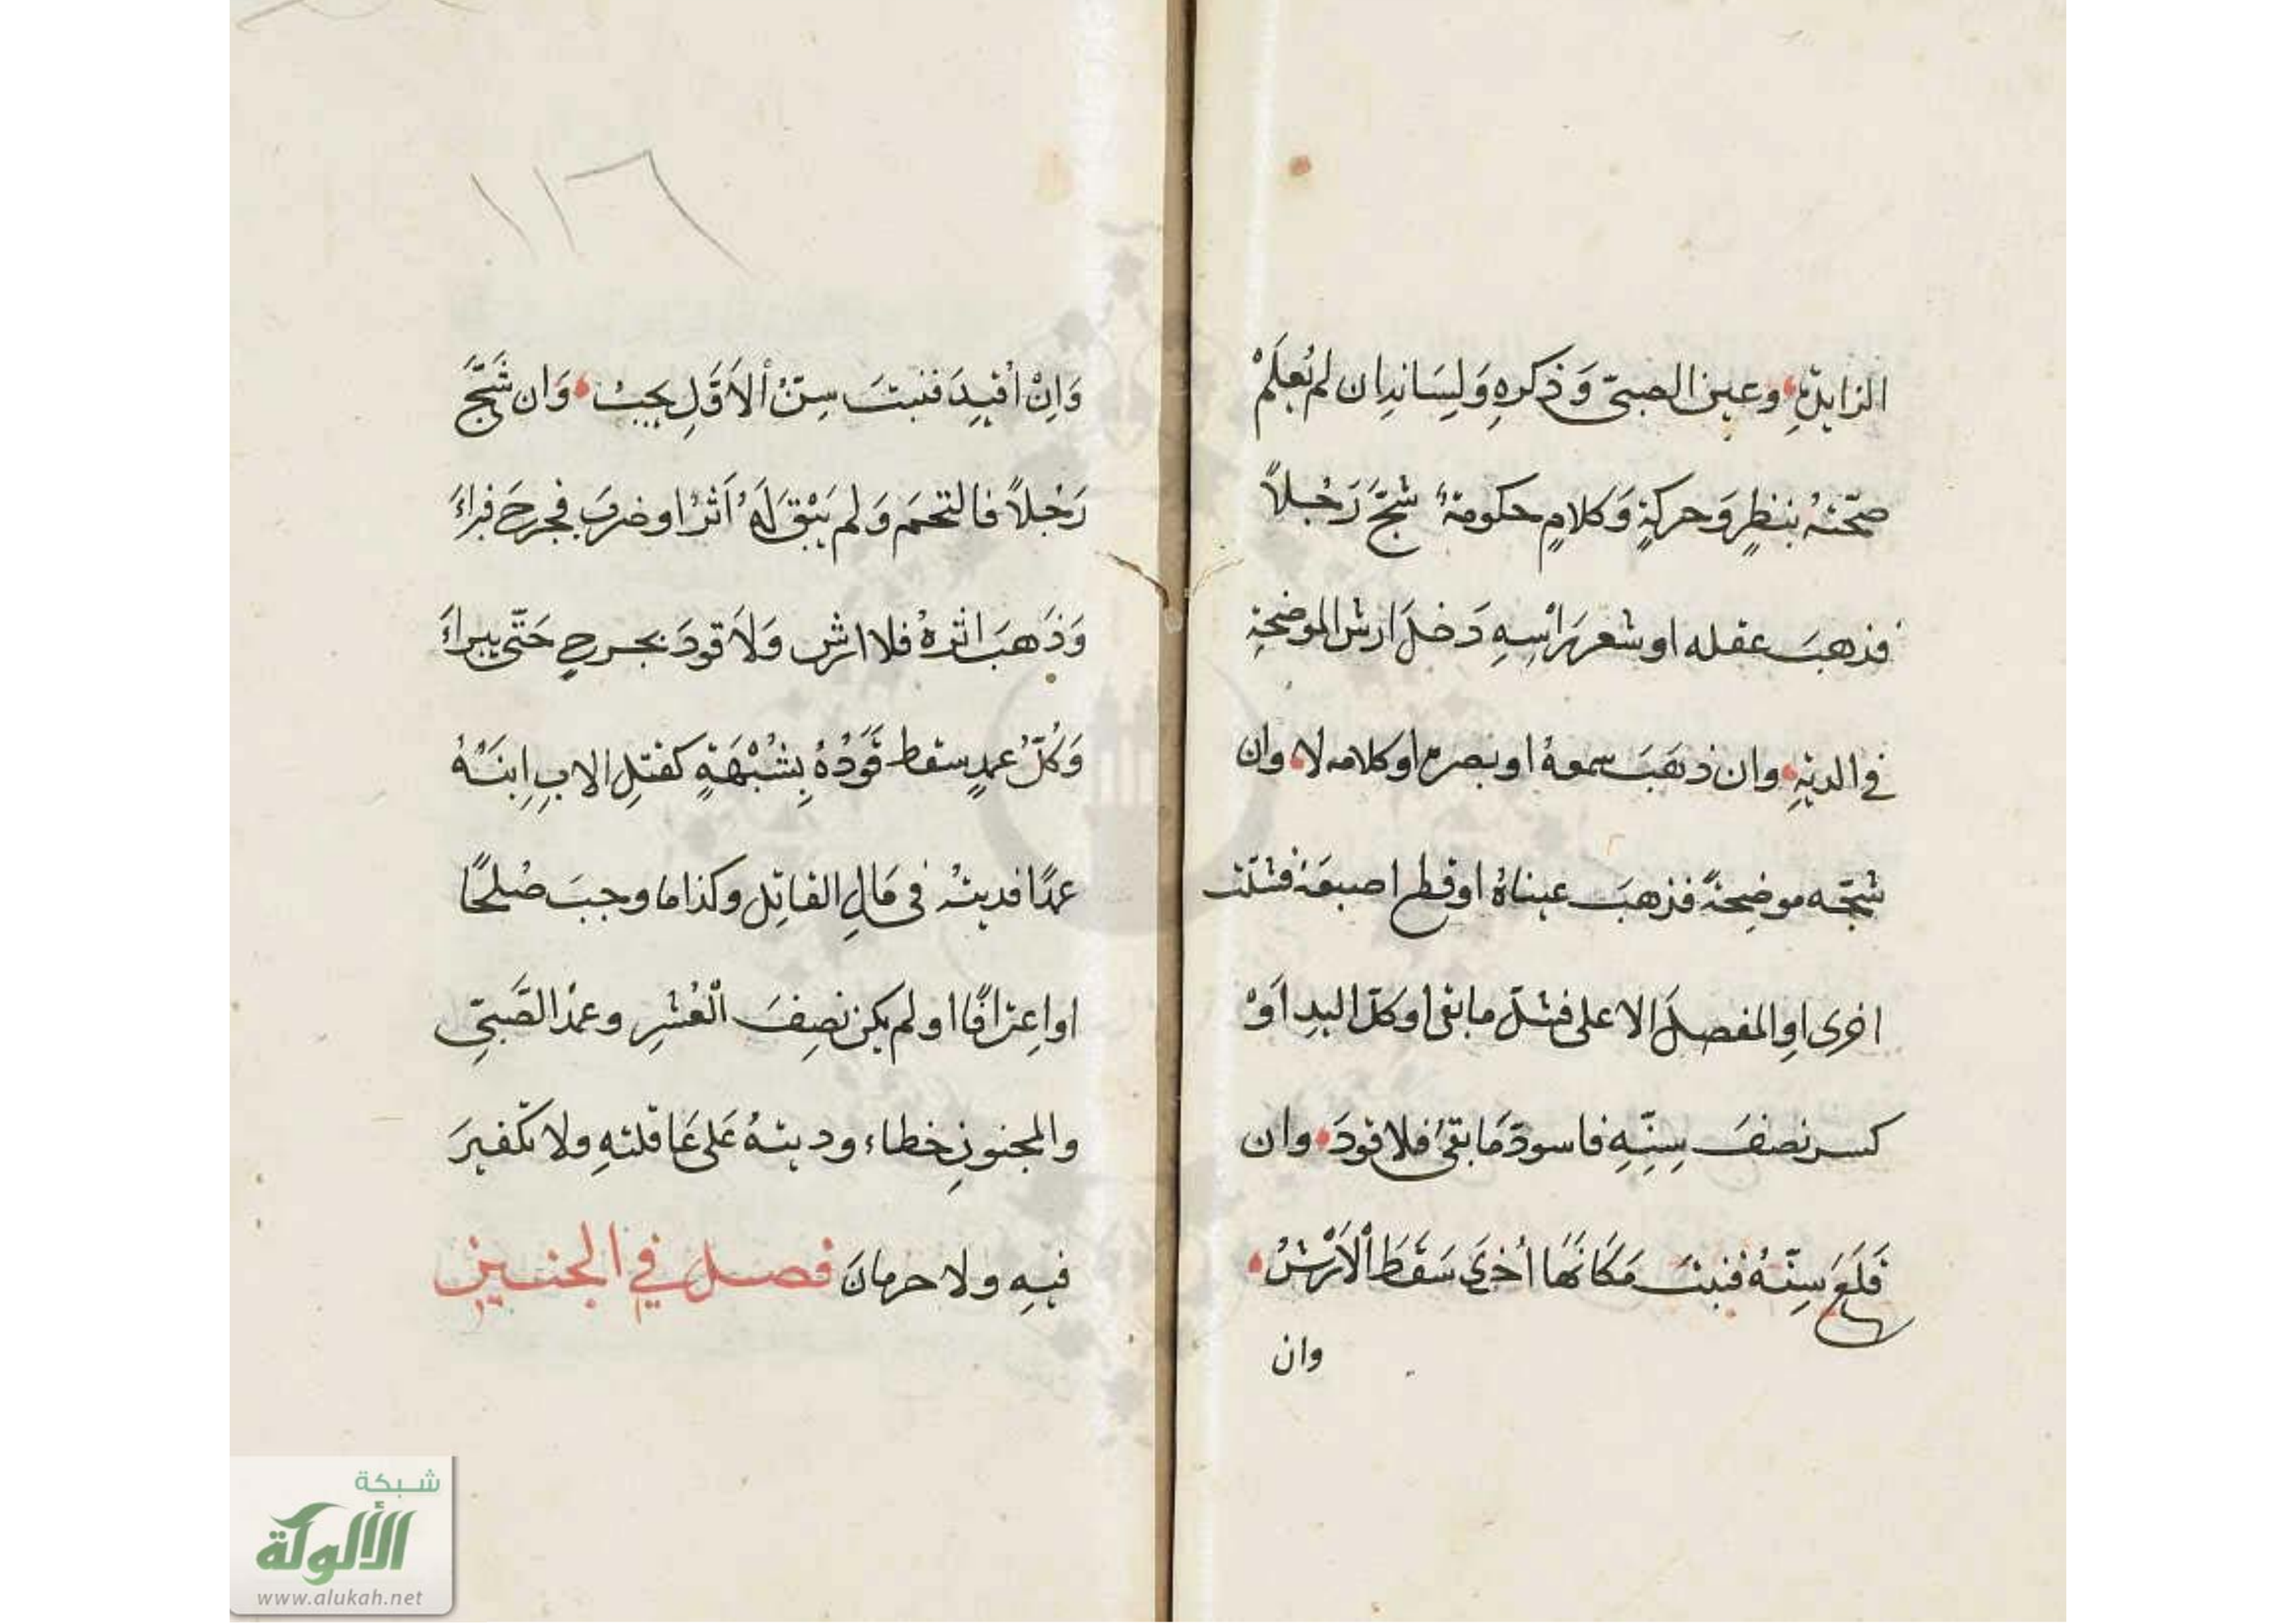 الزايدةِ وعين الصبىّ وَذكرهِ وَلِسَانهِ ان لم يُعلَمْ
صحّتهُ بنظرٍ وَحركةٍ وَكلامٍ حكومةٌ شجَّ رَجُلاً
فذهبَ عقله او شعر رَاْسِهِ دَخلَ ارش الموضحةِ
في الديةِ وان ذهَبَ سمعهُ او بصره او كلامه لا وان
شجّه موضِحةً فذهبَ عيناهُ او قطع اصبعَهُ فشلّت
اخرى اوِ المفصلَ الاعلى فشلّ ما بقى او كلّ اليدِ اَوْ
كسر نصفَ سِنِّهِ فاسودّ مَا بقىَ فلا قودَ وان
قَلَعَ سِنّهُ فنبتَ مَكَانَهَا اُخرَى سَقَطَ اْلاَرْشُ
وان
١١٦
وَاِنْ اُقيِدَ فنبتَ سِنُّ اْلاَوَّلِ يجبُ وَان شَجَّ
رَجُلاً فالتحمَ وَلم يَبْقَ لَهُ اَثرٌ او ضربَ فجرحَ فبراءَ
وَذَهبَ اثرهُ فلا ارش وَلاَ قودَ بجرحٍ حَتّى يبراءَ
وَكُلُّ عمدٍ سقط قَوَدُهُ بِشُبْهَةٍ كقتلِ الابِ اِبنَهُ
عمدًا فديتهُ فى مَالِ القاتِل وكذا ما وجبَ صُلحًا
او اعِترافًا او لم يكن نصِفَ الْعُشرِ وعمدُ الصَّبىِّ
والمجنونِ خطاء وديتهُ عَلى عَاقلتهِ ولا تكّفيرَ
فيهِ ولا حرمانَ فصل في الجنين
شبكة
الألوكة
www.alukah.net